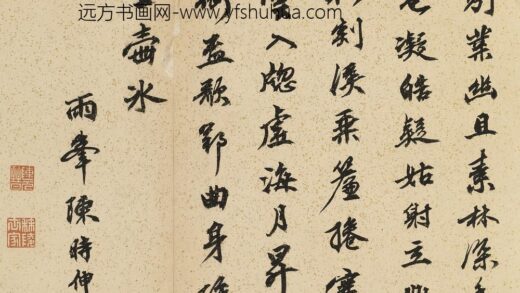 远方书画网-www.yfshuhua.com
别业幽且素林深
凝皓疑姑射立
剡溪乘簾捲寒
入窗虚海月昇
孟歌郢曲身
壺冰
雨峯陳時伸